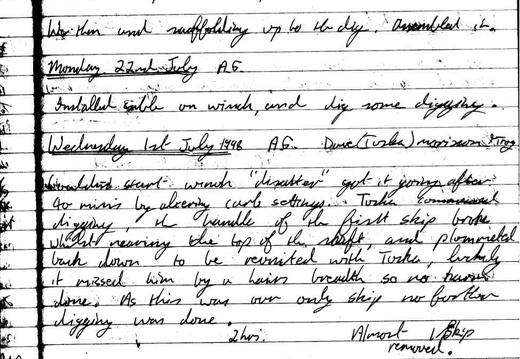 then and scaffolding up to the dig. Assembled it.
Monday 22nd July A.G.
Installed cable on winch, and dig some digging.
Wednesday 1st July 1998 A.G. Dave (Toska) morrison
start winch "disaster" got it going after
40 mins by altering carb settings. Toska
digging, the handle of the first skip broke
whilst nearing the top of the shaft, and plommeted
back down to be reunited with Toska, luckily
it missed him by a hairs breadth so no harm
done. As this was our only skip no further
digging was done.
2hrs. Almost 1 skip
removed.